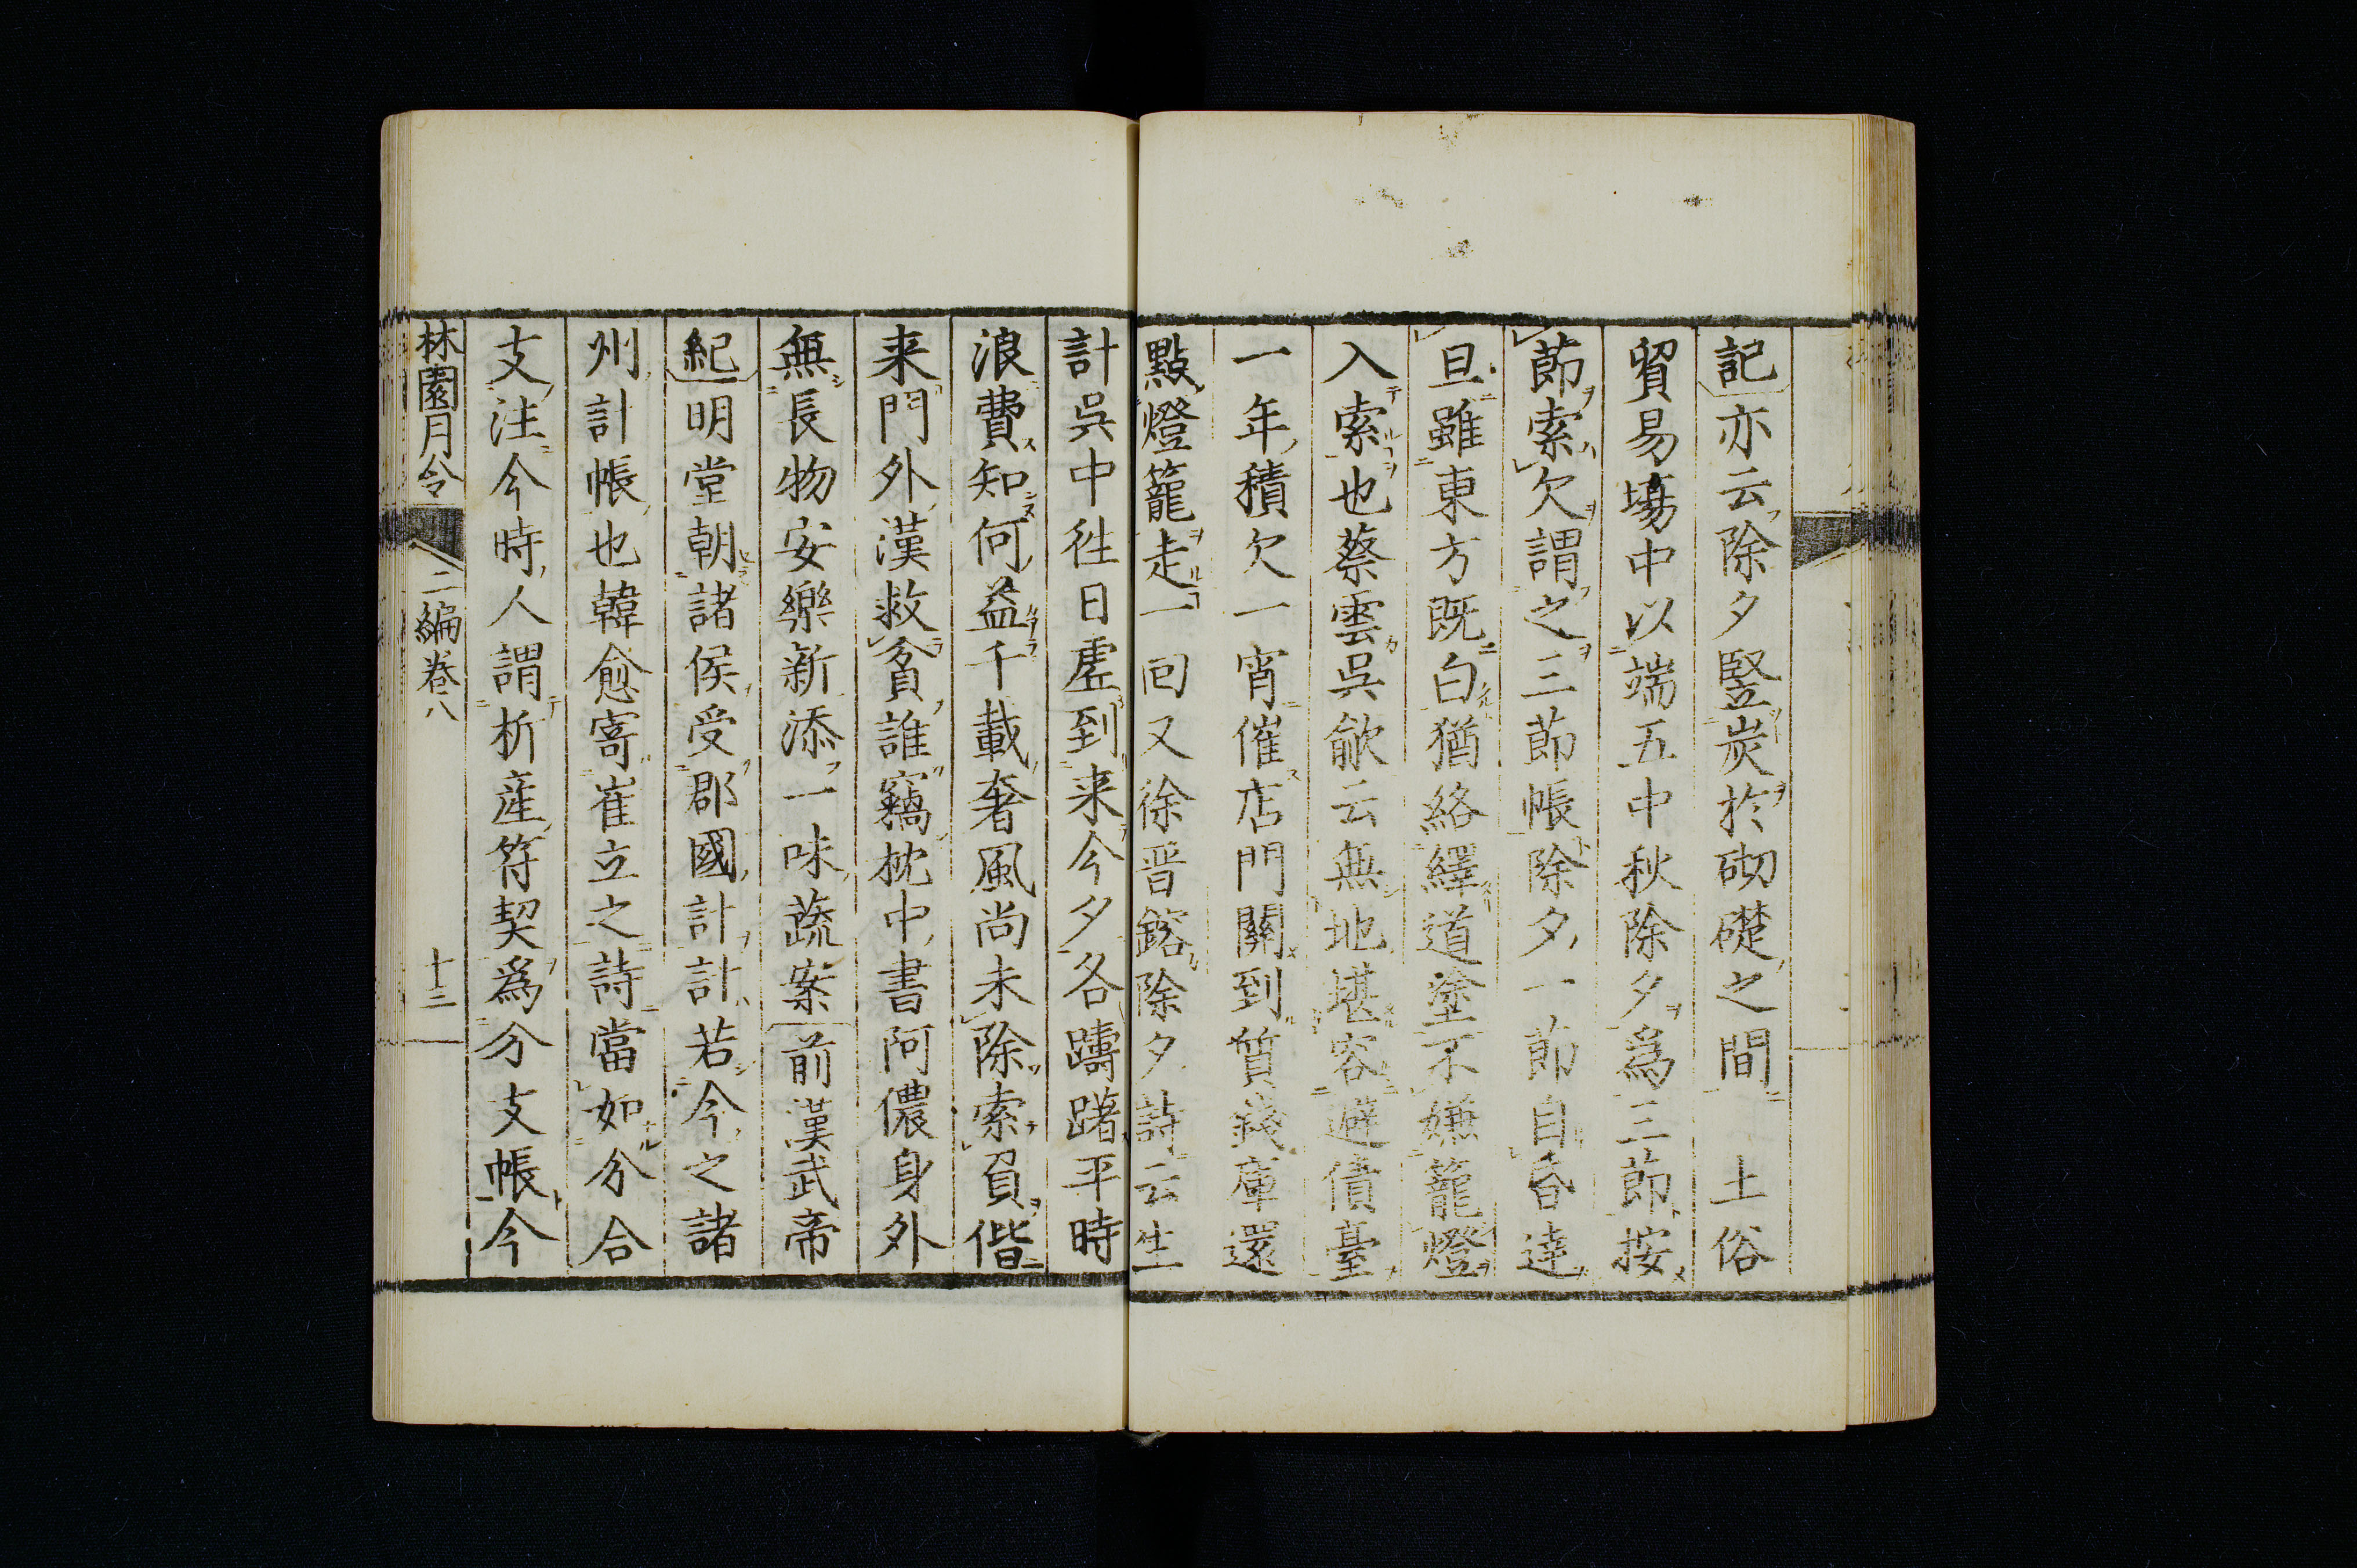 記亦云除夕竪炭於砌礎之間　土俗
貿易塲中以端五中秋除夕爲三節按
節索欠謂之三節帳除夕一節自昏達
旦雖東方既白猶絡繹道塗不嫌籠燈
入索也蔡雲吳歈云無地堪容避債臺
一年積欠一宵催店門關到質錢庫還
點燈籠走一回又徐晋鎔除夕詩云生
計吳中徃日虗到来今夕各躊躇平時
浪費知何益千載奢風尚未除索負偕
来門外漢救貧誰竊枕中書阿儂身外
無長物安樂新添一味蔬案前漢武帝
紀明堂朝諸侯受郡國計計若今之諸
州計帳也韓愈寄崔立之詩當如分合
支注今時人謂析産符契爲分支帳今
林園月令　二編卷八　十三